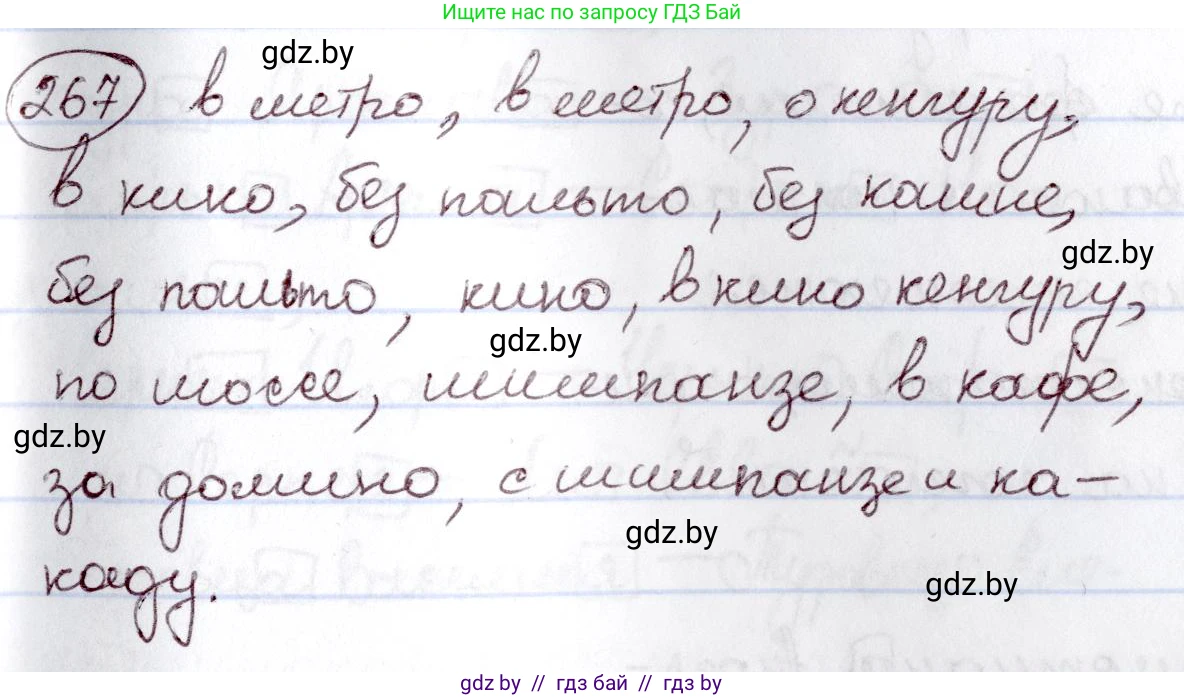 Ищите нас по запросу ГДЗ Бай
gdz.by
267 в метро, в метро, о кенгуру,
в кино, без пальто, без кашне,
gdz.by
без пальто, кино, в кино кенгуру,
gdz.by
по шоссе, шимпанзе, в кафе,
gdz.by
за домино, с шимпанзе и ка-
gdz.by
каду.
gdz.by
gdz.by // гдз бай // гдз by